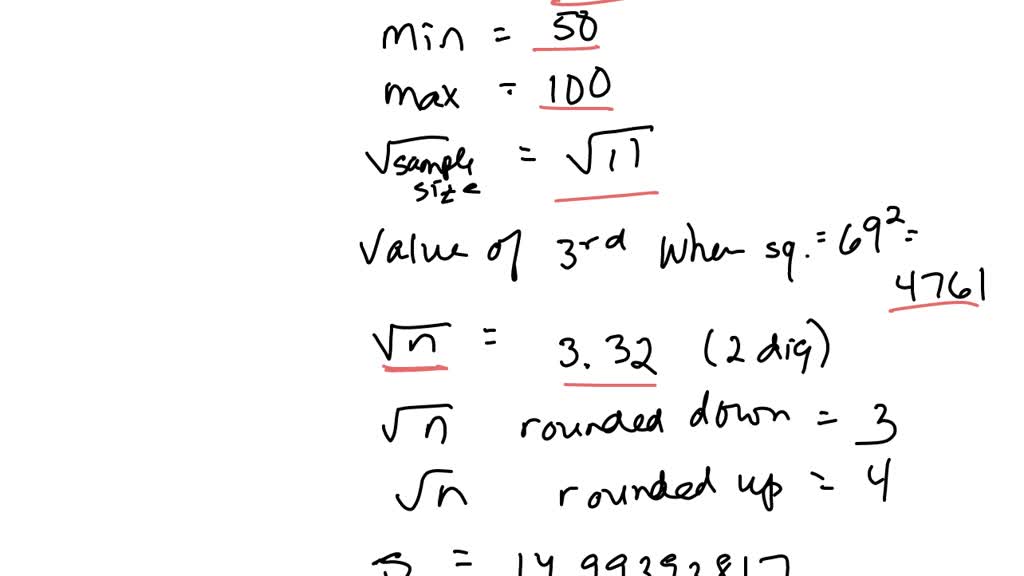 min = 50
max = 100
√sample size = √11
Value of 3rd when sq. = 69² =
4761
√n = 3.32 (2 dig)
√n rounded down = 3
√n rounded up = 4
= 14.99392817